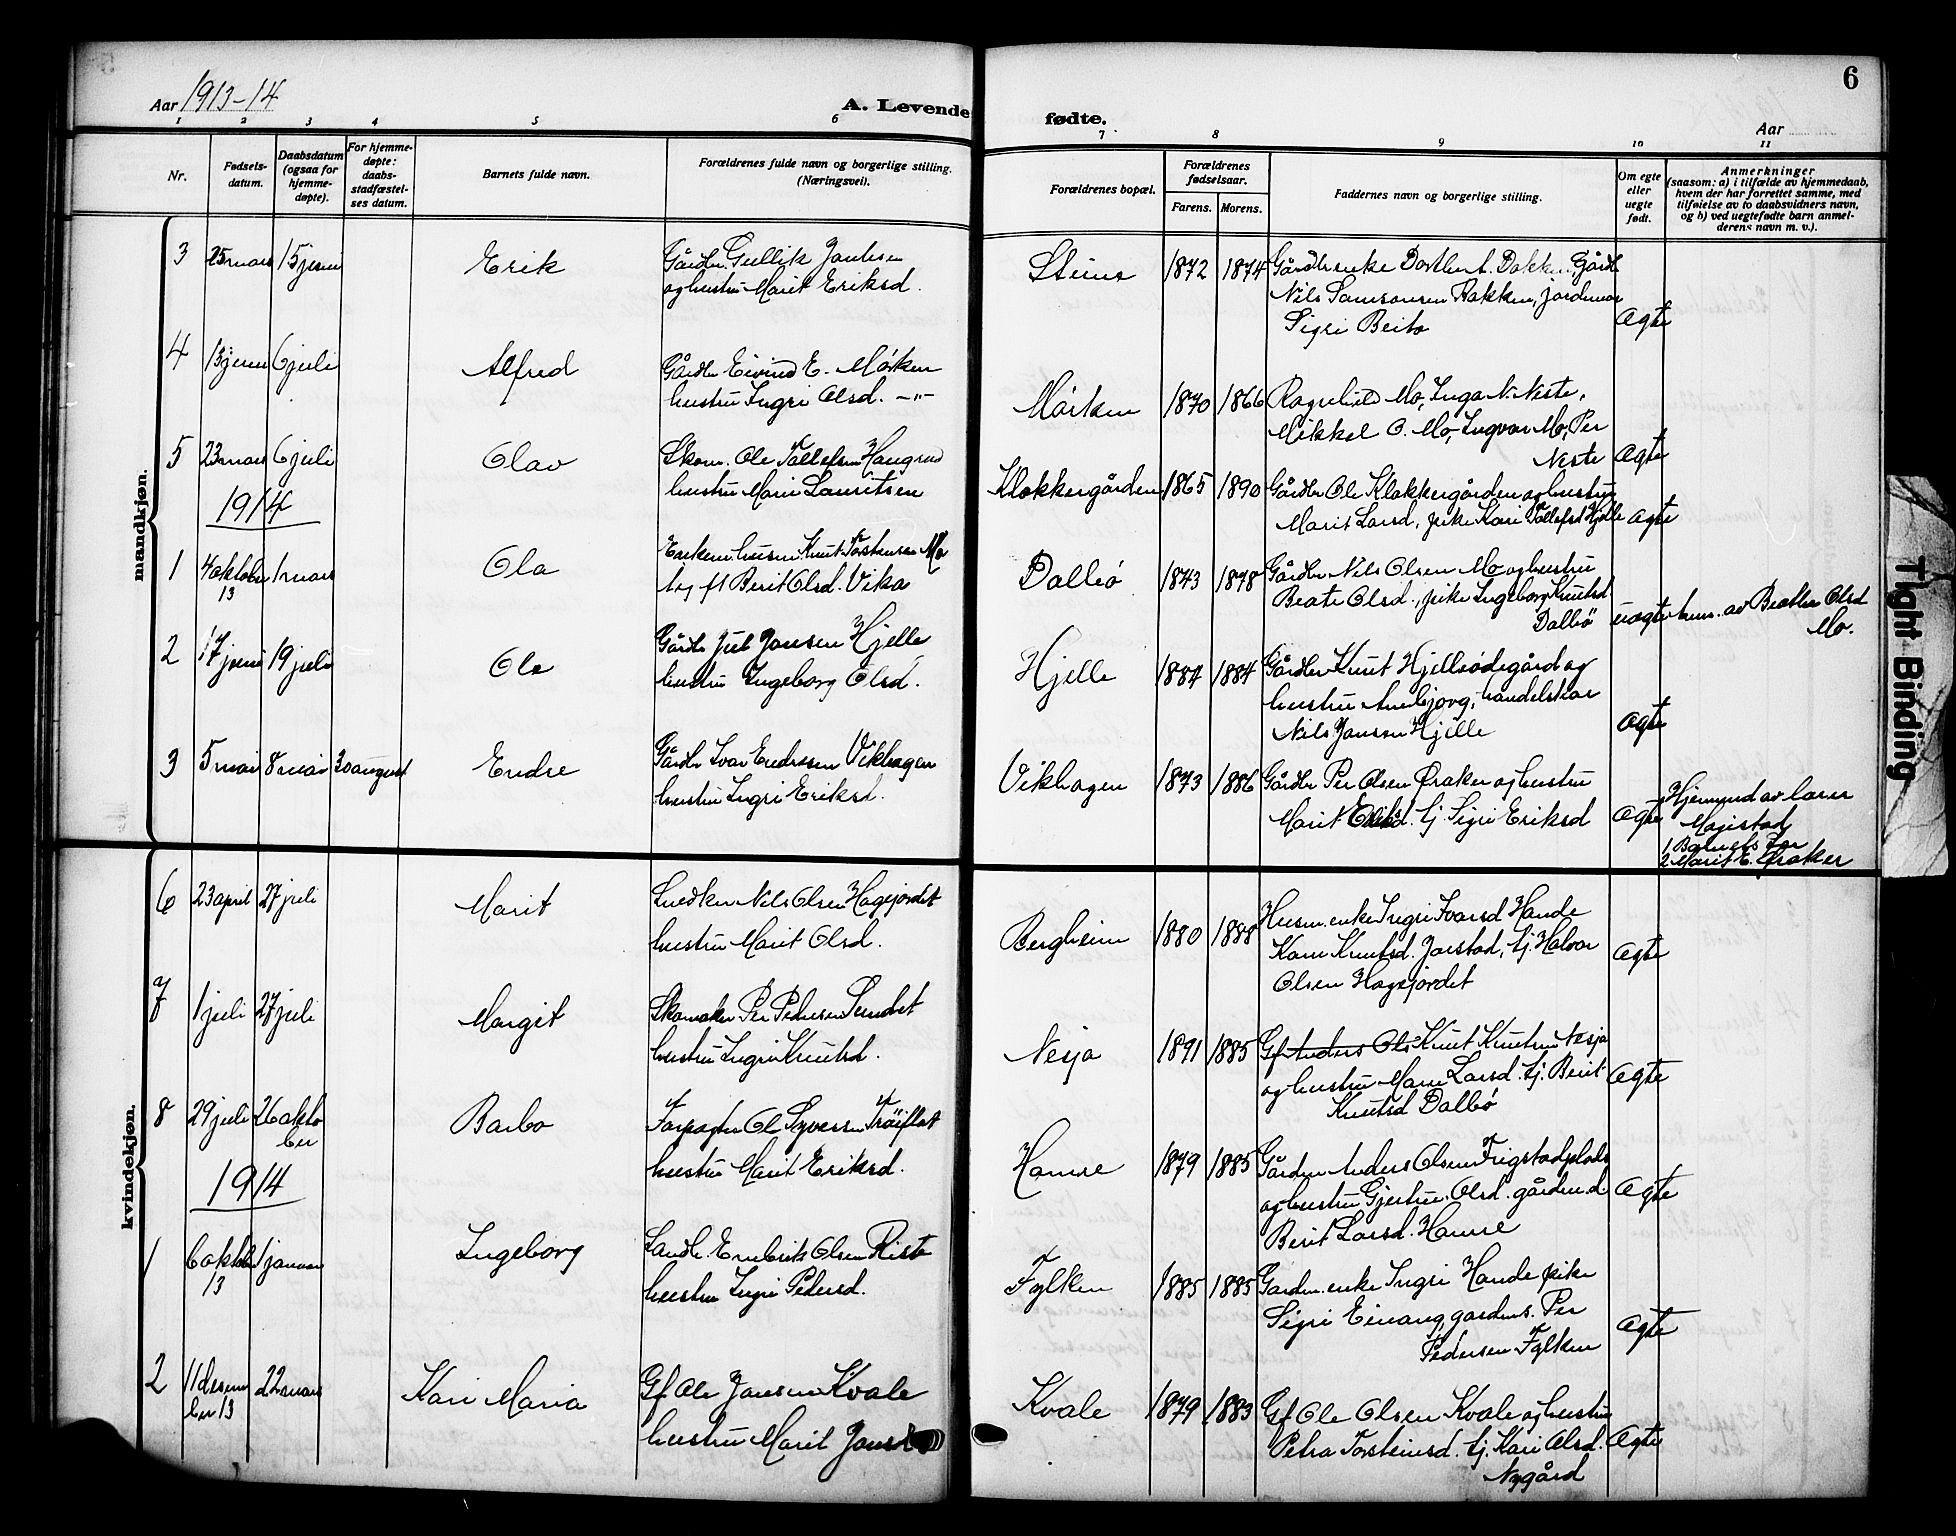 Aar 1913-14
A. Levende fødte.
Aar
6
1 2 3 4 5 6 7 8 9 10 11
Nr.
Fødsels-
datum.
Daabsdatum
(ogsaa for
hjemme-
døpte).
For hjemme-
døpte:
daabs-
stadfæstel-
ses datum.
Barnets fulde navn.
Forældrenes fulde navn og borgerlige stilling.
(Næringsvei).
Forældrenes bopæl.
Forældrenes
fødselsaar.
Farens. Morens.
Faddernes navn og borgerlige stilling.
Om egte
eller
uegte
født.
Anmerkninger
(saasom: a) i tilfælde av hjemmedaab,
hvem der har forrettet samme, med
tilføielse av to daabsvidners navn,
og b) ved uegtefødte barn anmel-
derens navn m. v.).
mandkjøn.
3 25 mars 15 juni Erik
Gårdbr. Gullik
og hustru Marit Eriksd.
1872 1874
Nils Samsonsen Bakken,
Sigri Beito
Ægte
4 13 juni 6 juli Alfred
Gårdbr Eivind E. Mörken
hustru Ingri Olsd. -"-
Mörken 1870 1866
Ragnhild Mo, Inga N. Neste,
Mikkel O. Mo, Ingvar Mo, Per
Neste Ægte
5 23 mars 6 juli Olav
Skom. Ole Tollefsen Haugrud
hustru Marie Lauritsen
Klokkergården 1865 1890
Gårdbr Ole Klokkergården og hustru
Marit Larsd, pike Kari Tollefsd Hjelle Ægte
1914
1 4 oktober 13 1 mars Ola
Enkem. husm. Knut Torstensen Mo
og ft Berit Olsd. Vika
Dalbö 1843 1878
Gårdbr Nils Olsen Mo og hustru
Beate Olsd., pike Ingeborg Knutsd
Dalbö uægte
av Beathe Olsd
Mo.
2 17 juni 19 juli Ole
Gårdbr Jansen Hjelle
hustru Ingeborg Olsd.
Hjelle 1884 1884
Gårdbr Knut Hjelleödegård og
hustru Annbjorg, handelskar
Nils Jansen Hjelle
Ægte
3 5 mai 8 mai 30 august Endre
Gårdbr Ivar Endresen Vikhagen
hustru Ingri Eriksd.
Vikhagen 1873 1886
Gårdbr Per Olsen Øraker og hustru
Marit tj. Sigri Eriksd Ægte
av lærer
1 Barnets Far
2 Marit E. Øraker
kvindekjøn.
6 23 april 27 juli Marit
Snedker Nils Olsen Hagejordet
hustru Marit Olsd.
Bergheim 1880 1888
Husm. enke Ingri Ivarsd Hande
Kari Knutsd. Jarstad, tj. Halvor
Olsen Hagejordet
Ægte
7 1 juli 27 juli Margit
Skomaker Per Pedersen Sundet
hustru Ingri Knutsd.
Nesja 1891 1885
Gf Anders Ols Knut Knutsen Nesja
og hustru Marie Larsd. tj. Berit
Knutsd Dalbö
Ægte
8 29 juli 26 okto
ber
Barbo
Forpagter Ol Syversen Tröiflat
hustru Marit Eriksd.
Hamre 1879 1885
Gårdm Anders Olsen Frigstadplads
og hustru Gjertru. Olsd. gårdm.d.
Berit Larsd. Hamre
Ægte
1914
1 6 oktober 13 1 januar Ingeborg
Landh. Embrik Olsen Riste
hustru Ingri Pedersd.
Fylken 1885 1885
Gardm. enke Ingri Hande pike
Sigri Einang, gardms. Per
Pedersen Fylken
Ægte
2 11 desem
ber 13
22 mars
Kari Maria
Gf Ole Jansen Kvale
hustru Marit
Kvale 1879 1883
Gf Ole Olsen Kvale og hustru
Petra Torsteinsd. tj. Kari Olsd.
Nygård
Ægte
Tight Binding